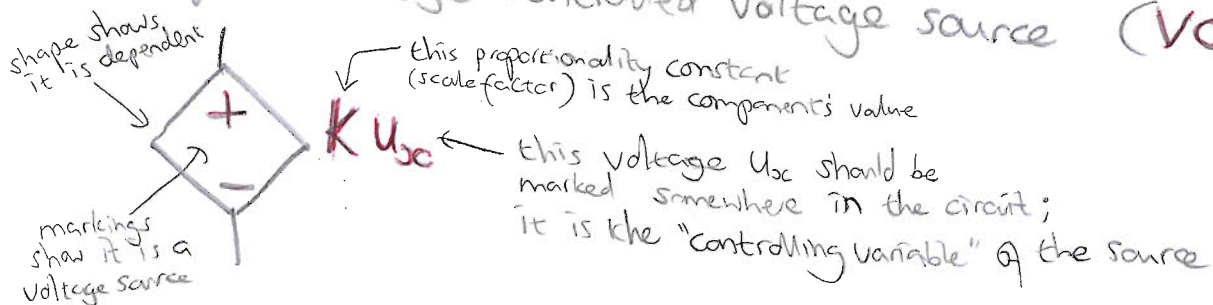 voltage source (VC
shape shows
it is dependent
this proportionality constant
(scale factor) is the component's value
+
K ux
-
this voltage ux should be
marked somewhere in the circuit;
it is the "controlling variable" of the source
markings
show it is a
voltage source